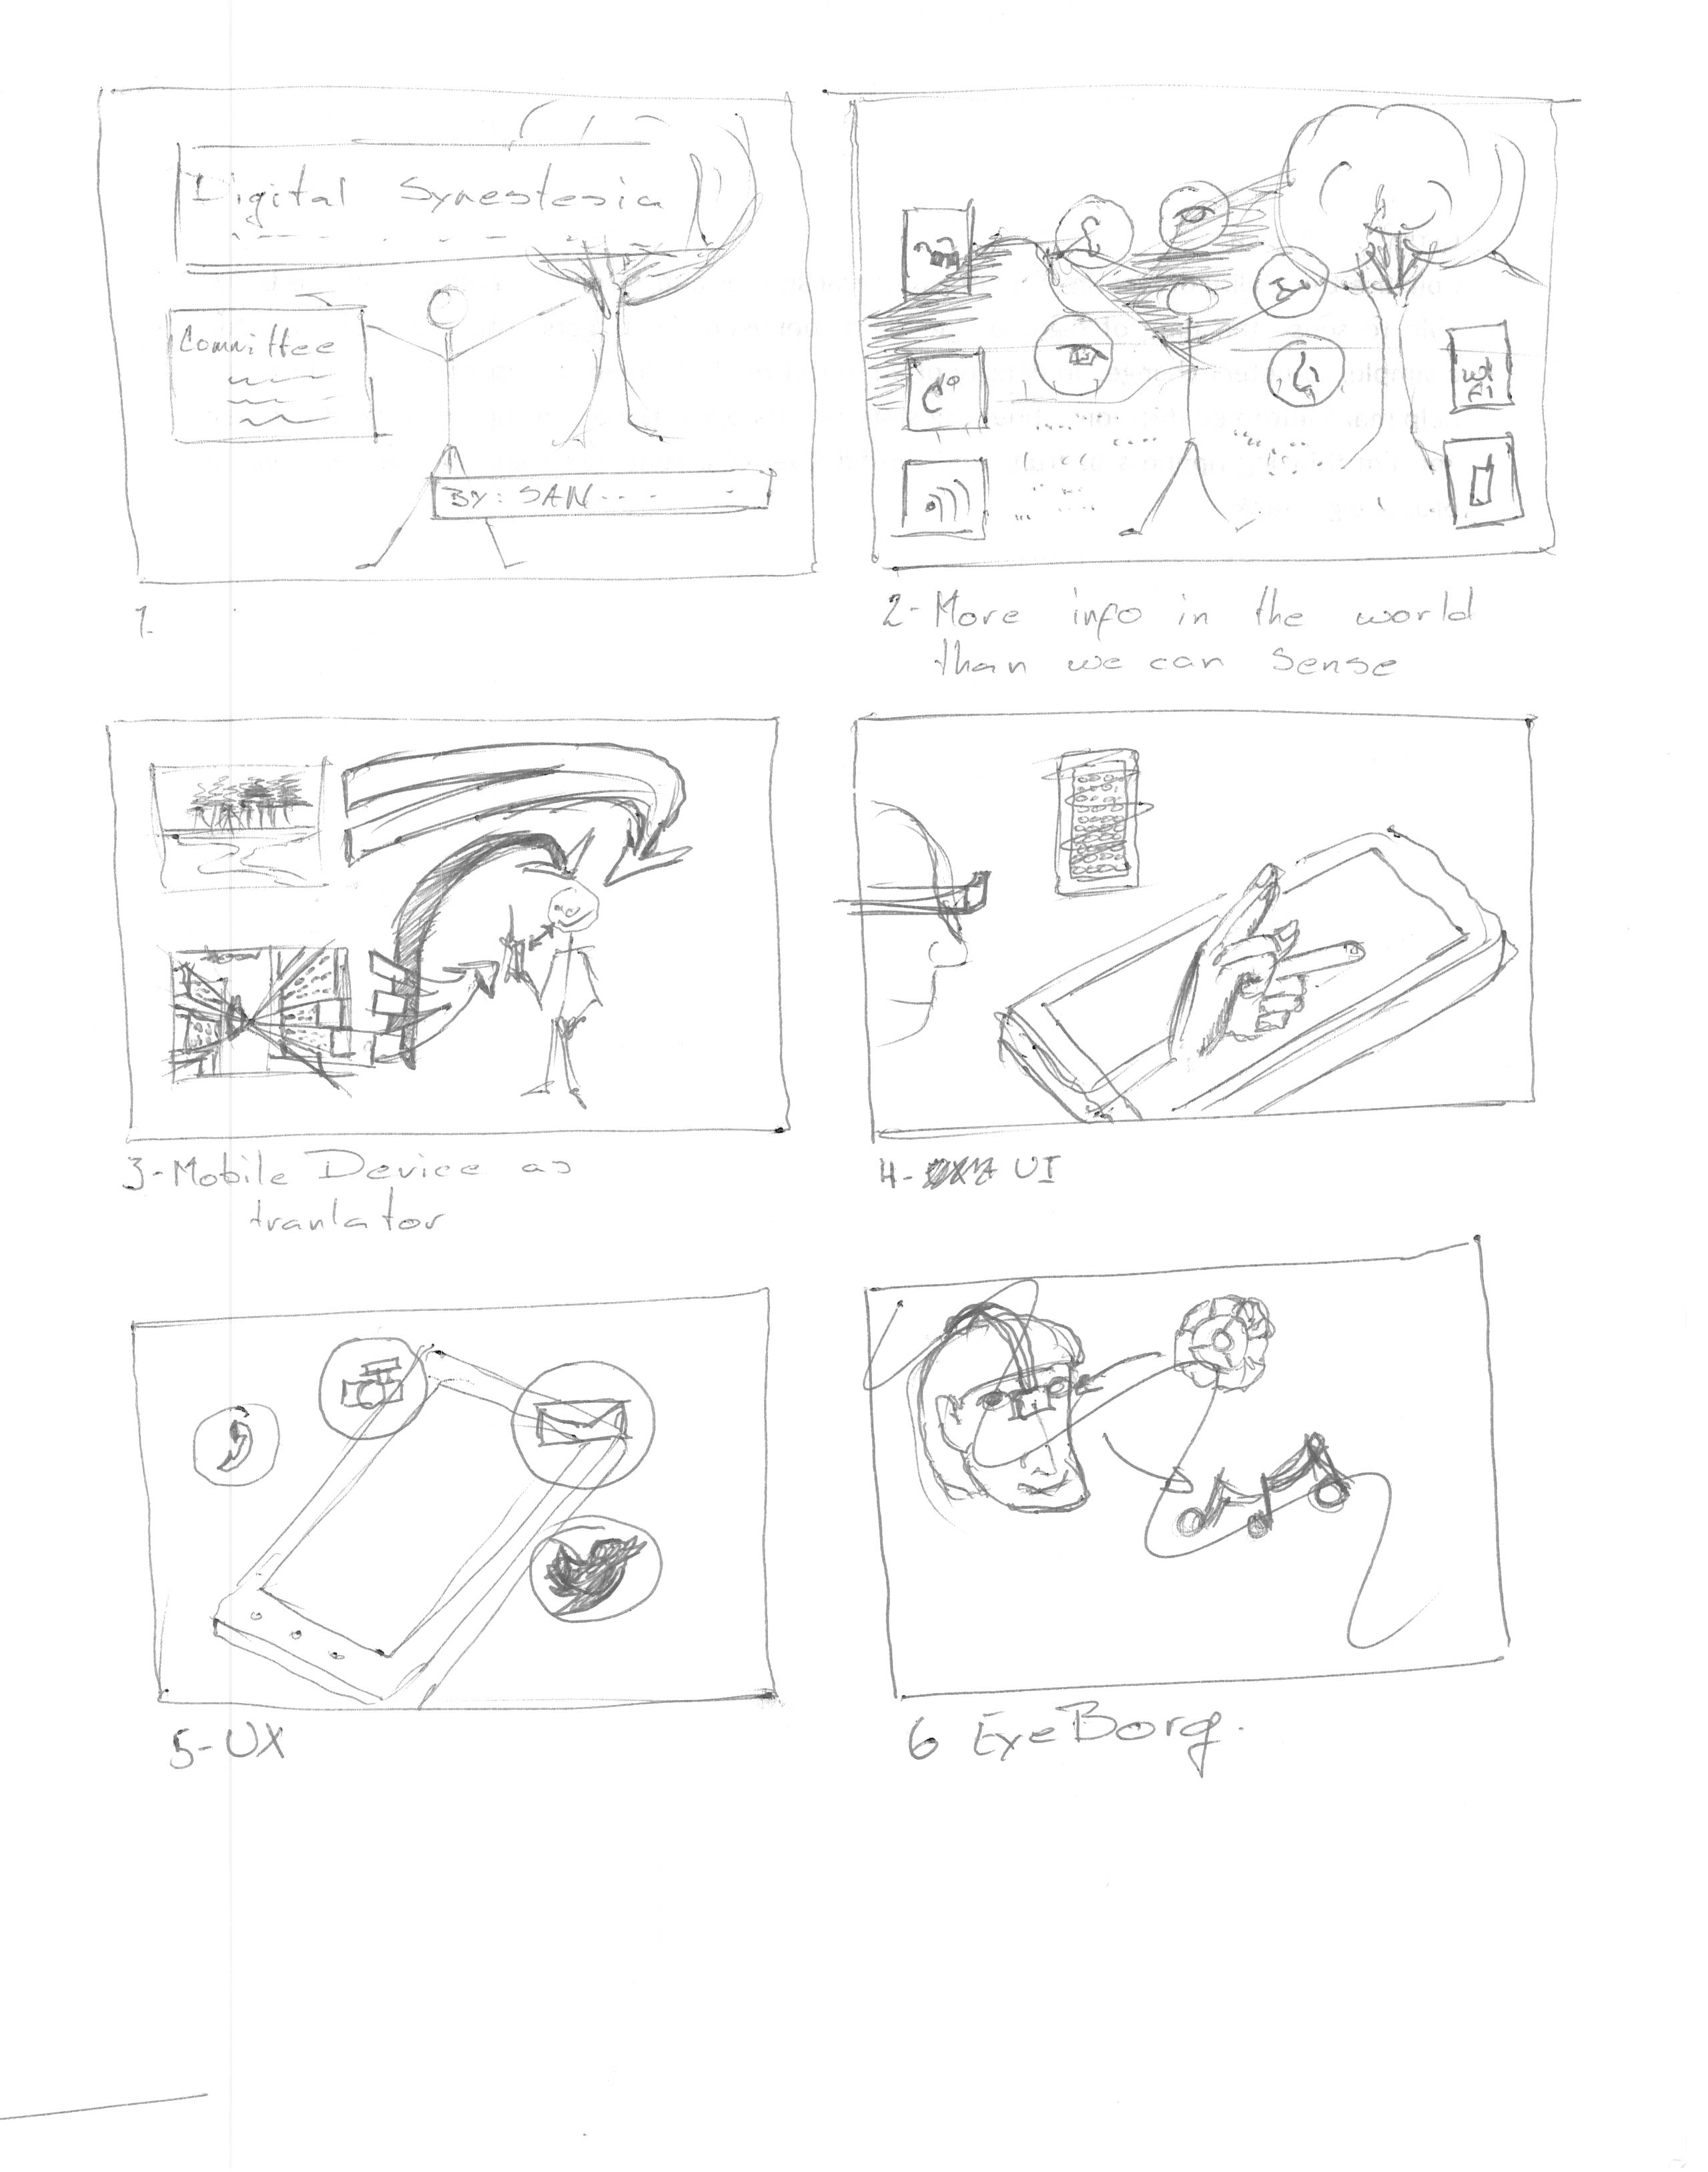 Digital Synestesia
Committee
BY: SAN...
1.
2- More info in the world
than we can sense
C°
3- Mobile Device as
tranlator
4- UI
5- UX
6 EyeBorg.